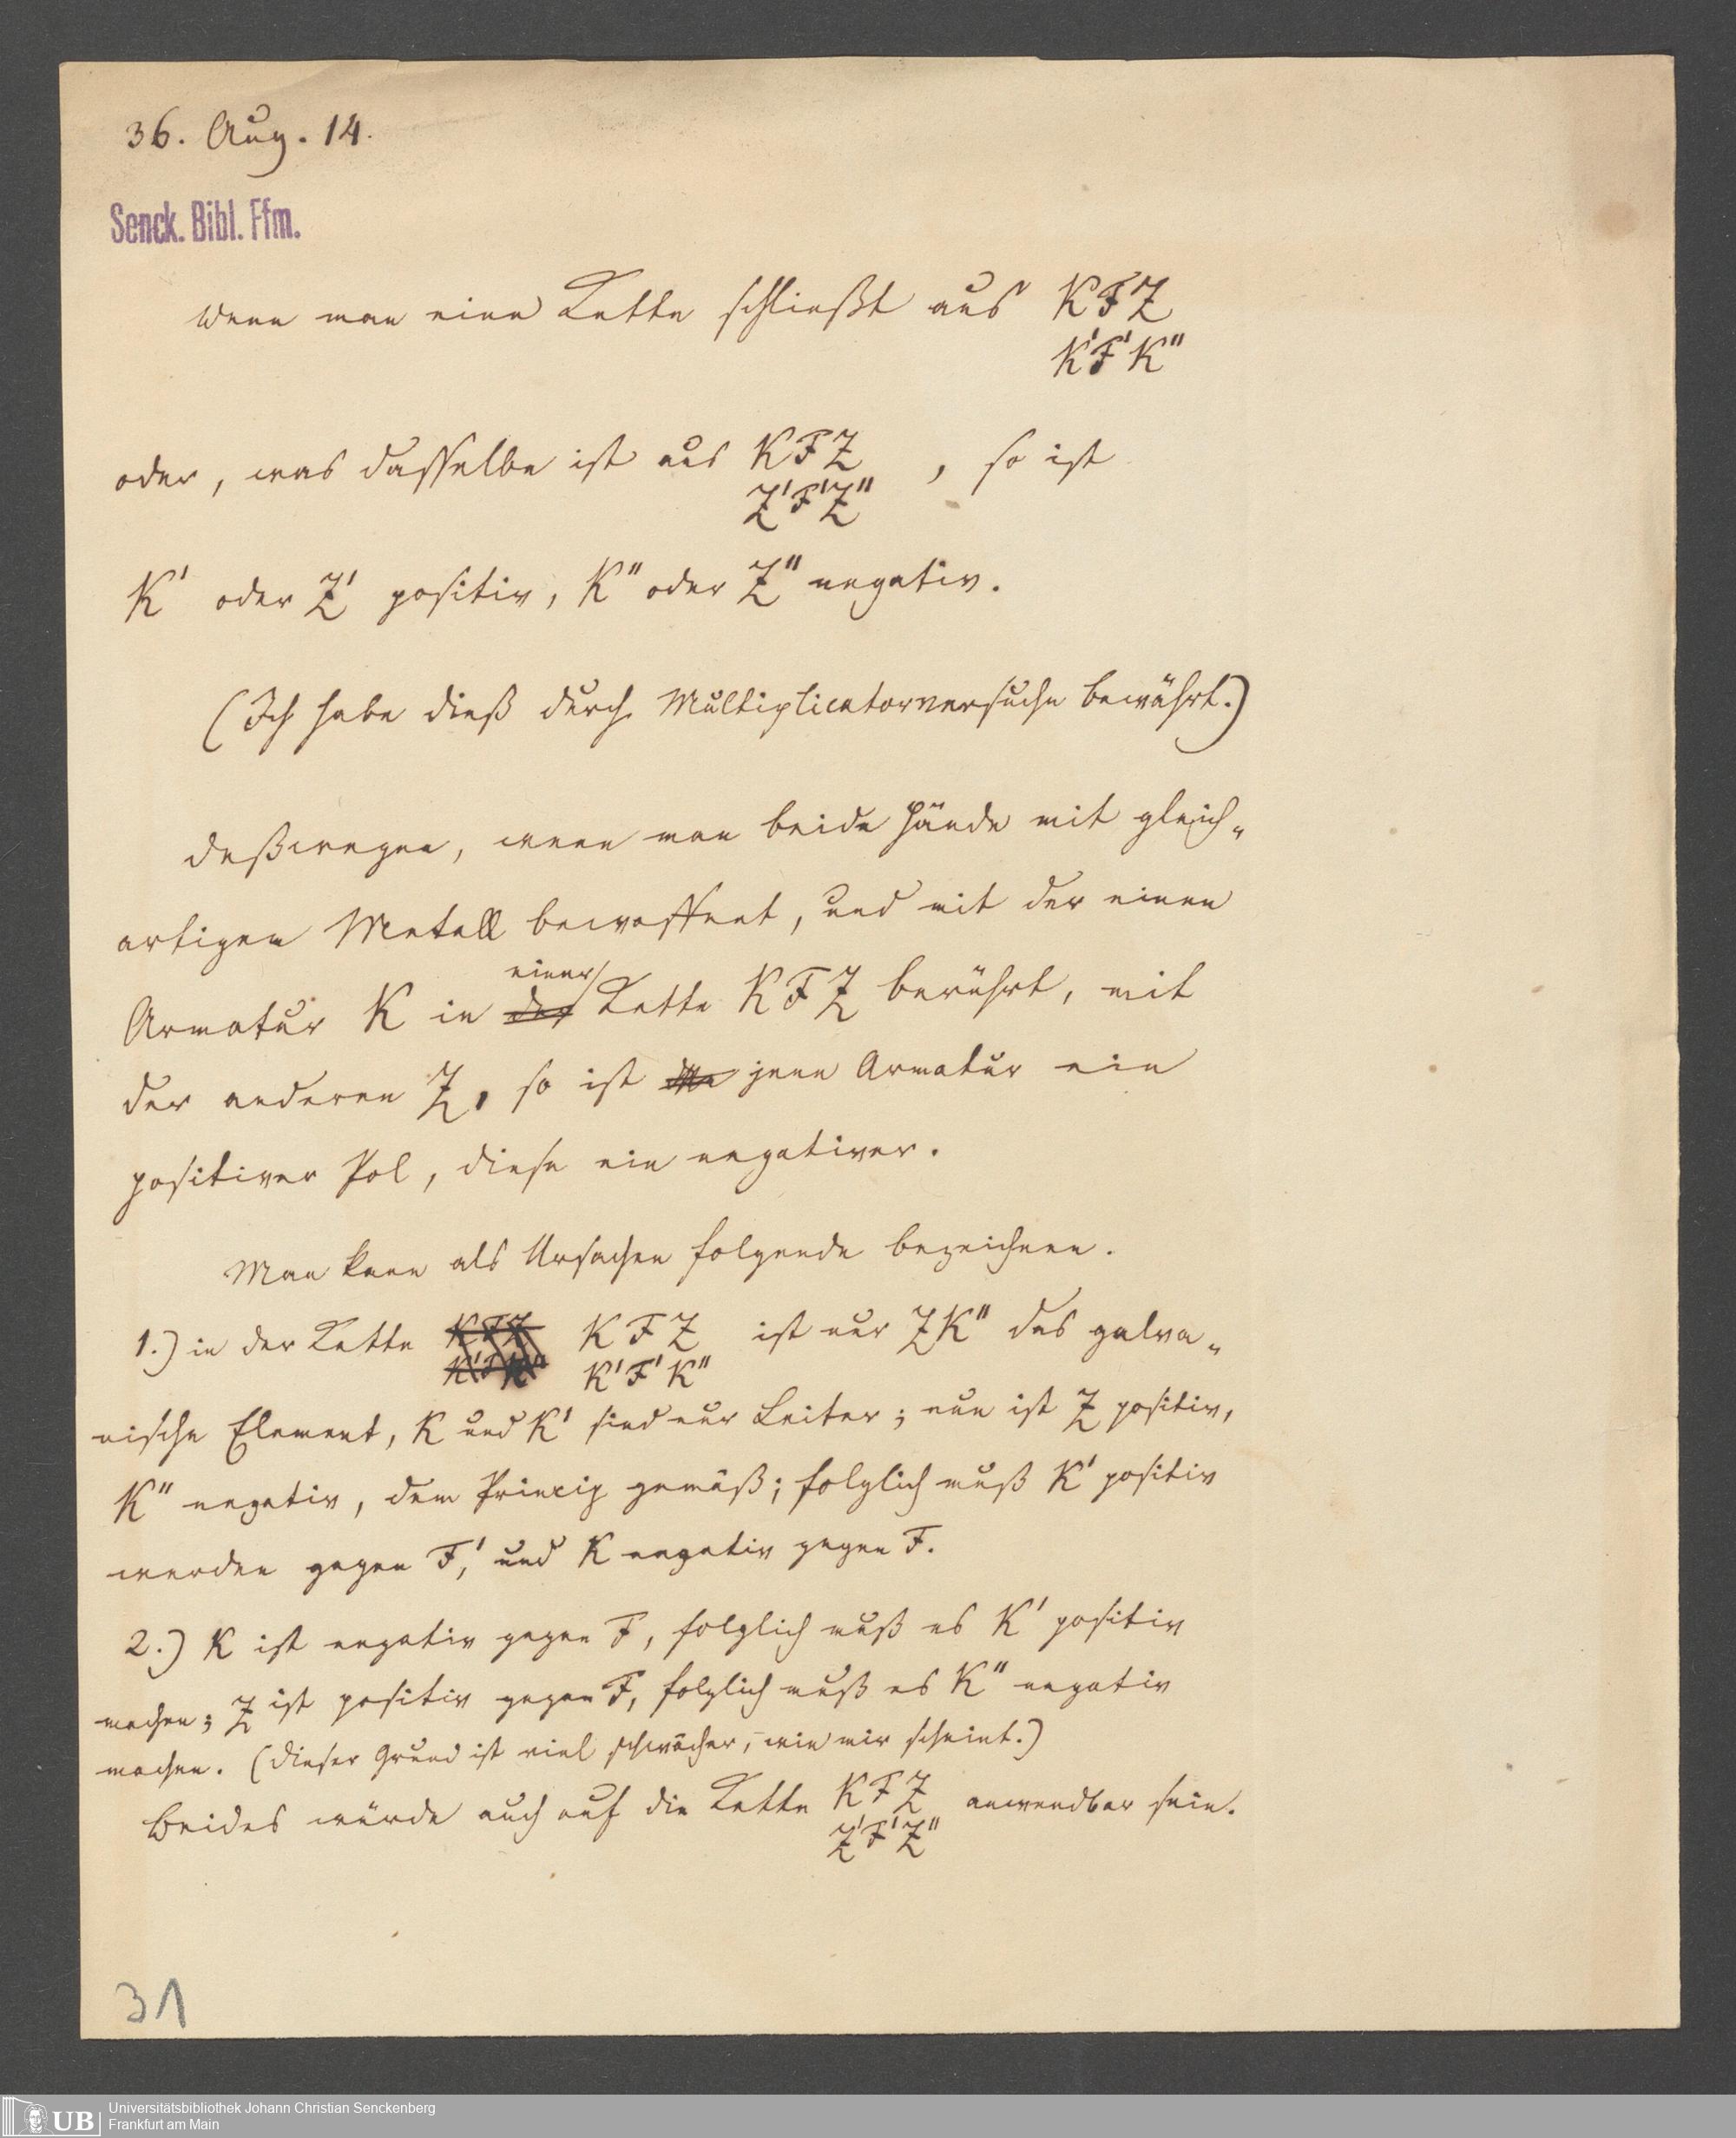 36. Aug. 14.
Senck. Bibl. Ffm.
Wenn man eine Kette schließt aus KFZ
K'F'K"
oder, was dasselbe ist aus KFZ , so ist
Z'F'Z"
K' oder Z' positiv, K" oder Z" negativ.
(Ich habe dieß durch Multiplicatorversuche bewährt.)
Deßwegen, wenn man beide Hände mit gleich-
artigem Metall bewaffnet, und mit der einen
einer
Armatur K in der Kette KFZ berührt, mit
der anderen Z, so ist jene Armatur ein
positiver Pol, diese ein negativer.
Man kann als Ursachen folgende bezeichnen.
1.) in der Kette KFZ KFZ ist nur ZK" das galva-
K'F'K" K'F'K"
nische Element, K und K' sind nur Leiter; nun ist Z positiv,
K" negativ, dem Princip gemäß; folglich muß K' positiv
werden gegen F', und K negativ gegen F.
2.) K ist negativ gegen F, folglich muß es K' positiv
machen; Z ist positiv gegen F, folglich muß es K" negativ
machen. (Dieser Grund ist viel schwächer, wie mir scheint.)
Beides würde auch auf die Kette KFZ anwendbar sein.
Z'F'Z"
31
UB
Universitätsbibliothek Johann Christian Senckenberg
Frankfurt am Main